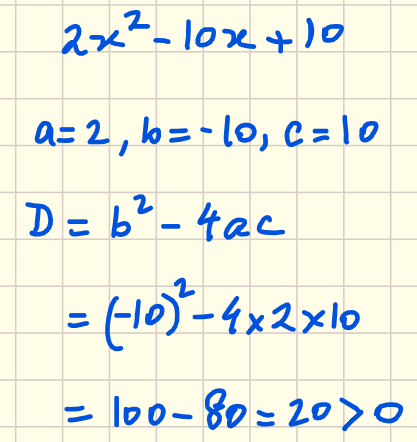 2x² - 10x + 10
a = 2, b = -10, c = 10
D = b² - 4ac
= (-10)² - 4 × 2 × 10
= 100 - 80 = 20 > 0